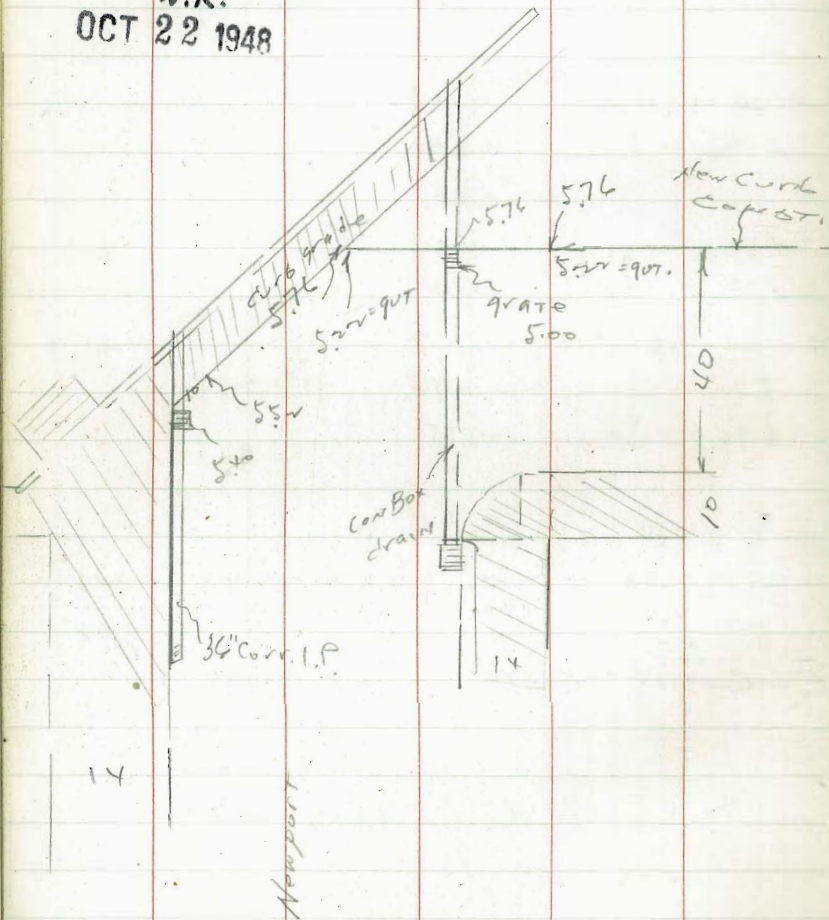 OCT 22 1948
New Curb
Const.
5.76
5.76
curb grade
5.76
5.22=gut
5.22=gut.
grate
5.00
40
10
5.52
5.40
10
Con Box
drain
36" Corr. I.P.
14
14
Newport